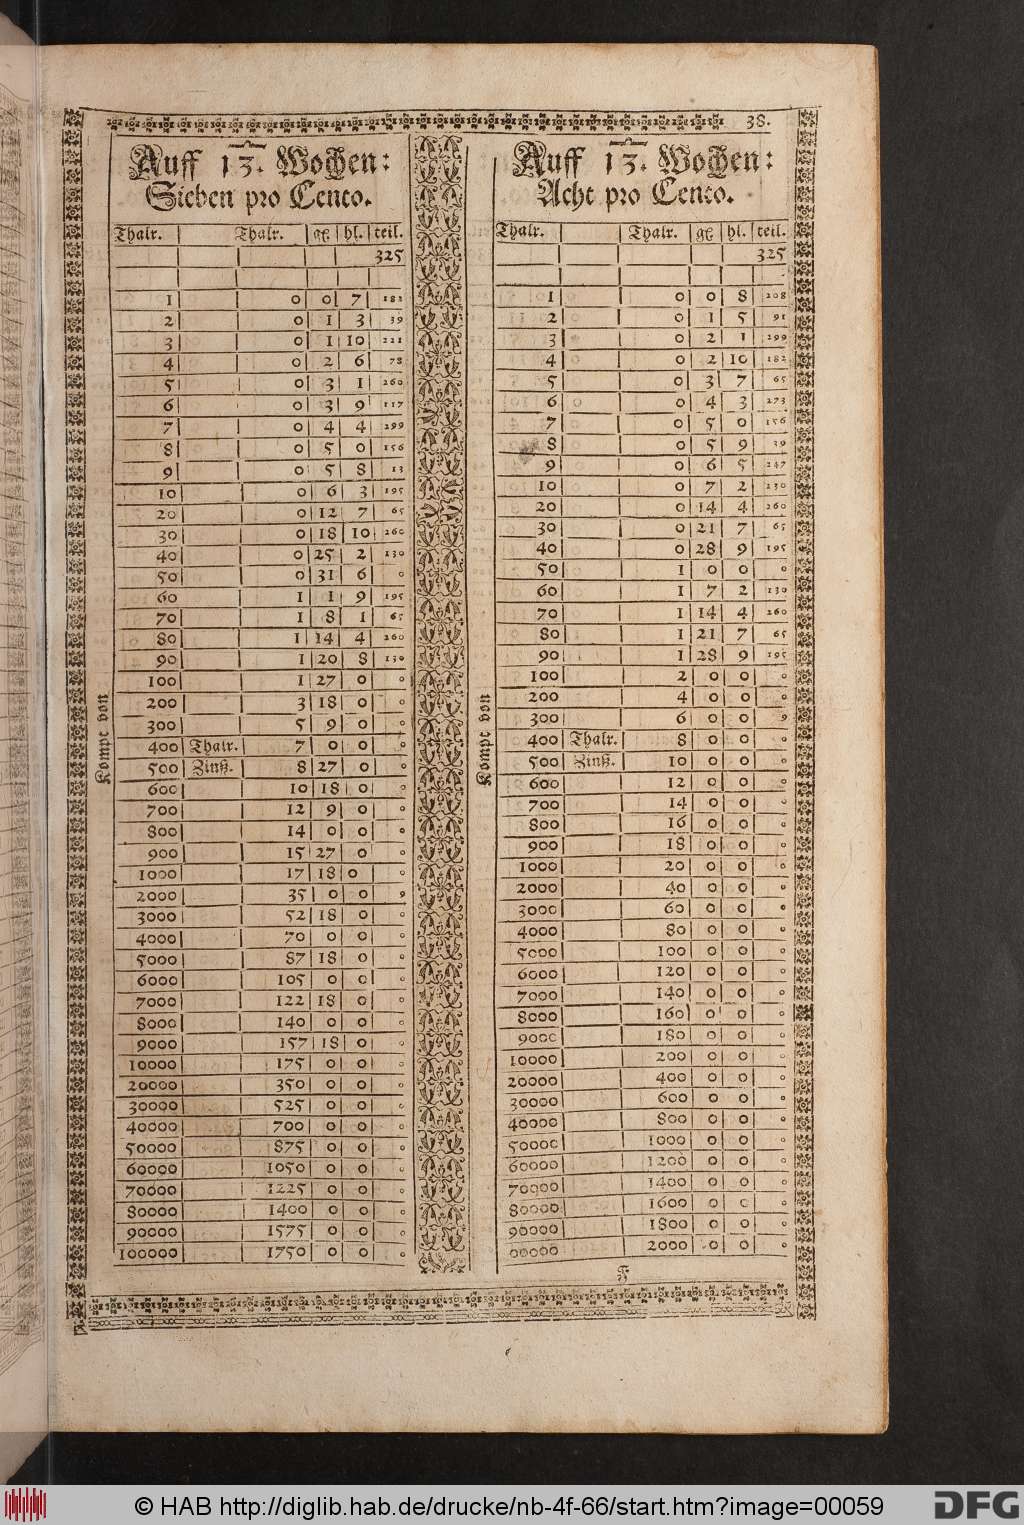 38.
Auff 13. Wochen:
Sieben pro Cento.
Thalr. Thalr. gℓ hl. teil.
325
1 0 0 7 182
2 0 1 3 39
3 0 1 10 221
4 0 2 6 78
5 0 3 1 260
6 0 3 9 117
7 0 4 4 299
8 0 5 0 156
9 0 5 8 13
10 0 6 3 195
20 0 12 7 65
30 0 18 10 260
40 0 25 2 130
50 0 31 6 0
60 1 1 9 195
70 1 8 1 65
80 1 14 4 260
90 1 20 8 130
100 1 27 0 0
200 3 18 0 0
300 5 9 0 0
400 Thalr. 7 0 0 0
500 Zinß. 8 27 0 0
600 10 18 0 0
700 12 9 0 0
800 14 0 0 0
900 15 27 0 0
1000 17 18 0 0
2000 35 0 0 0
3000 52 18 0 0
4000 70 0 0 0
5000 87 18 0 0
6000 105 0 0 0
7000 122 18 0 0
8000 140 0 0 0
9000 157 18 0 0
10000 175 0 0 0
20000 350 0 0 0
30000 525 0 0 0
40000 700 0 0 0
50000 875 0 0 0
60000 1050 0 0 0
70000 1225 0 0 0
80000 1400 0 0 0
90000 1575 0 0 0
100000 1750 0 0 0
Kompt von
Auff 13. Wochen:
Acht pro Cento.
Thalr. Thalr. gℓ hl. teil.
325
1 0 0 8 208
2 0 1 5 91
3 0 2 1 299
4 0 2 10 182
5 0 3 7 65
6 0 4 3 273
7 0 5 0 156
8 0 5 9 39
9 0 6 5 247
10 0 7 2 130
20 0 14 4 260
30 0 21 7 65
40 0 28 9 195
50 1 0 0 0
60 1 7 2 130
70 1 14 4 260
80 1 21 7 65
90 1 28 9 195
100 2 0 0 0
200 4 0 0 0
300 6 0 0 0
400 Thalr. 8 0 0 0
500 Zinß. 10 0 0 0
600 12 0 0 0
700 14 0 0 0
800 16 0 0 0
900 18 0 0 0
1000 20 0 0 0
2000 40 0 0 0
3000 60 0 0 0
4000 80 0 0 0
5000 100 0 0 0
6000 120 0 0 0
7000 140 0 0 0
8000 160 0 0 0
9000 180 0 0 0
10000 200 0 0 0
20000 400 0 0 0
30000 600 0 0 0
40000 800 0 0 0
50000 1000 0 0 0
60000 1200 0 0 0
70000 1400 0 0 0
80000 1600 0 0 0
90000 1800 0 0 0
00000 2000 0 0 0
Kompt von
F
© HAB http://diglib.hab.de/drucke/nb-4f-66/start.htm?image=00059
DFG